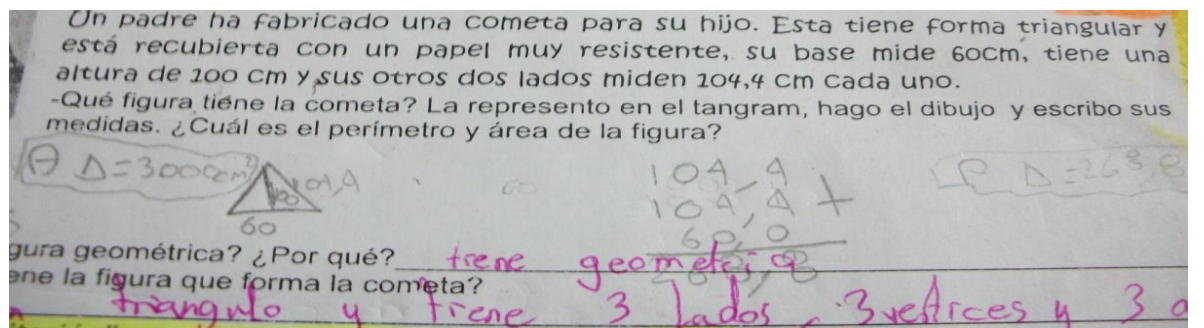 Un padre ha fabricado una cometa para su hijo. Esta tiene forma triangular y
está recubierta con un papel muy resistente, su base mide 60cm, tiene una
altura de 100 cm y sus otros dos lados miden 104,4 cm cada uno.
-Qué figura tiene la cometa? La represento en el tangram, hago el dibujo y escribo sus
medidas. ¿Cuál es el perímetro y área de la figura?
A Δ=3000cm² 104,4 104,4 P Δ=268,8
100 104,4 +
60 60,0
268,8
gura geométrica? ¿Por qué? tiene geometria
ene la figura que forma la cometa?
triangulo y tiene 3 lados, 3 vertices y 3 a